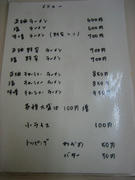 メニュー
正油 ラーメン 600円
塩 ラーメン 600円
味噌 ラーメン 700円
正油 野菜 ラーメン 700円
塩 野菜 ラーメン 700円
正油 チャーシューメン 850円
塩 チャーシューメン 850円
味噌 チャーシューメン 950円
各種大盛は 100円増
小ライス 100円
トッピング わかめ 50円
バター 50円